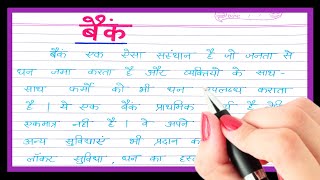 बैंक
बैंक एक ऐसा संस्थान है जो जनता से
धन जमा करता है और व्यक्तियो के साथ-
साथ फर्मों को भी धन उपलब्ध कराता
है। ये एक बैंक प्राथमिक है
एकमात्र नहीं है। वे अपने
अन्य सुविधाएं भी प्रदान
लॉकर सुविधा, धन का